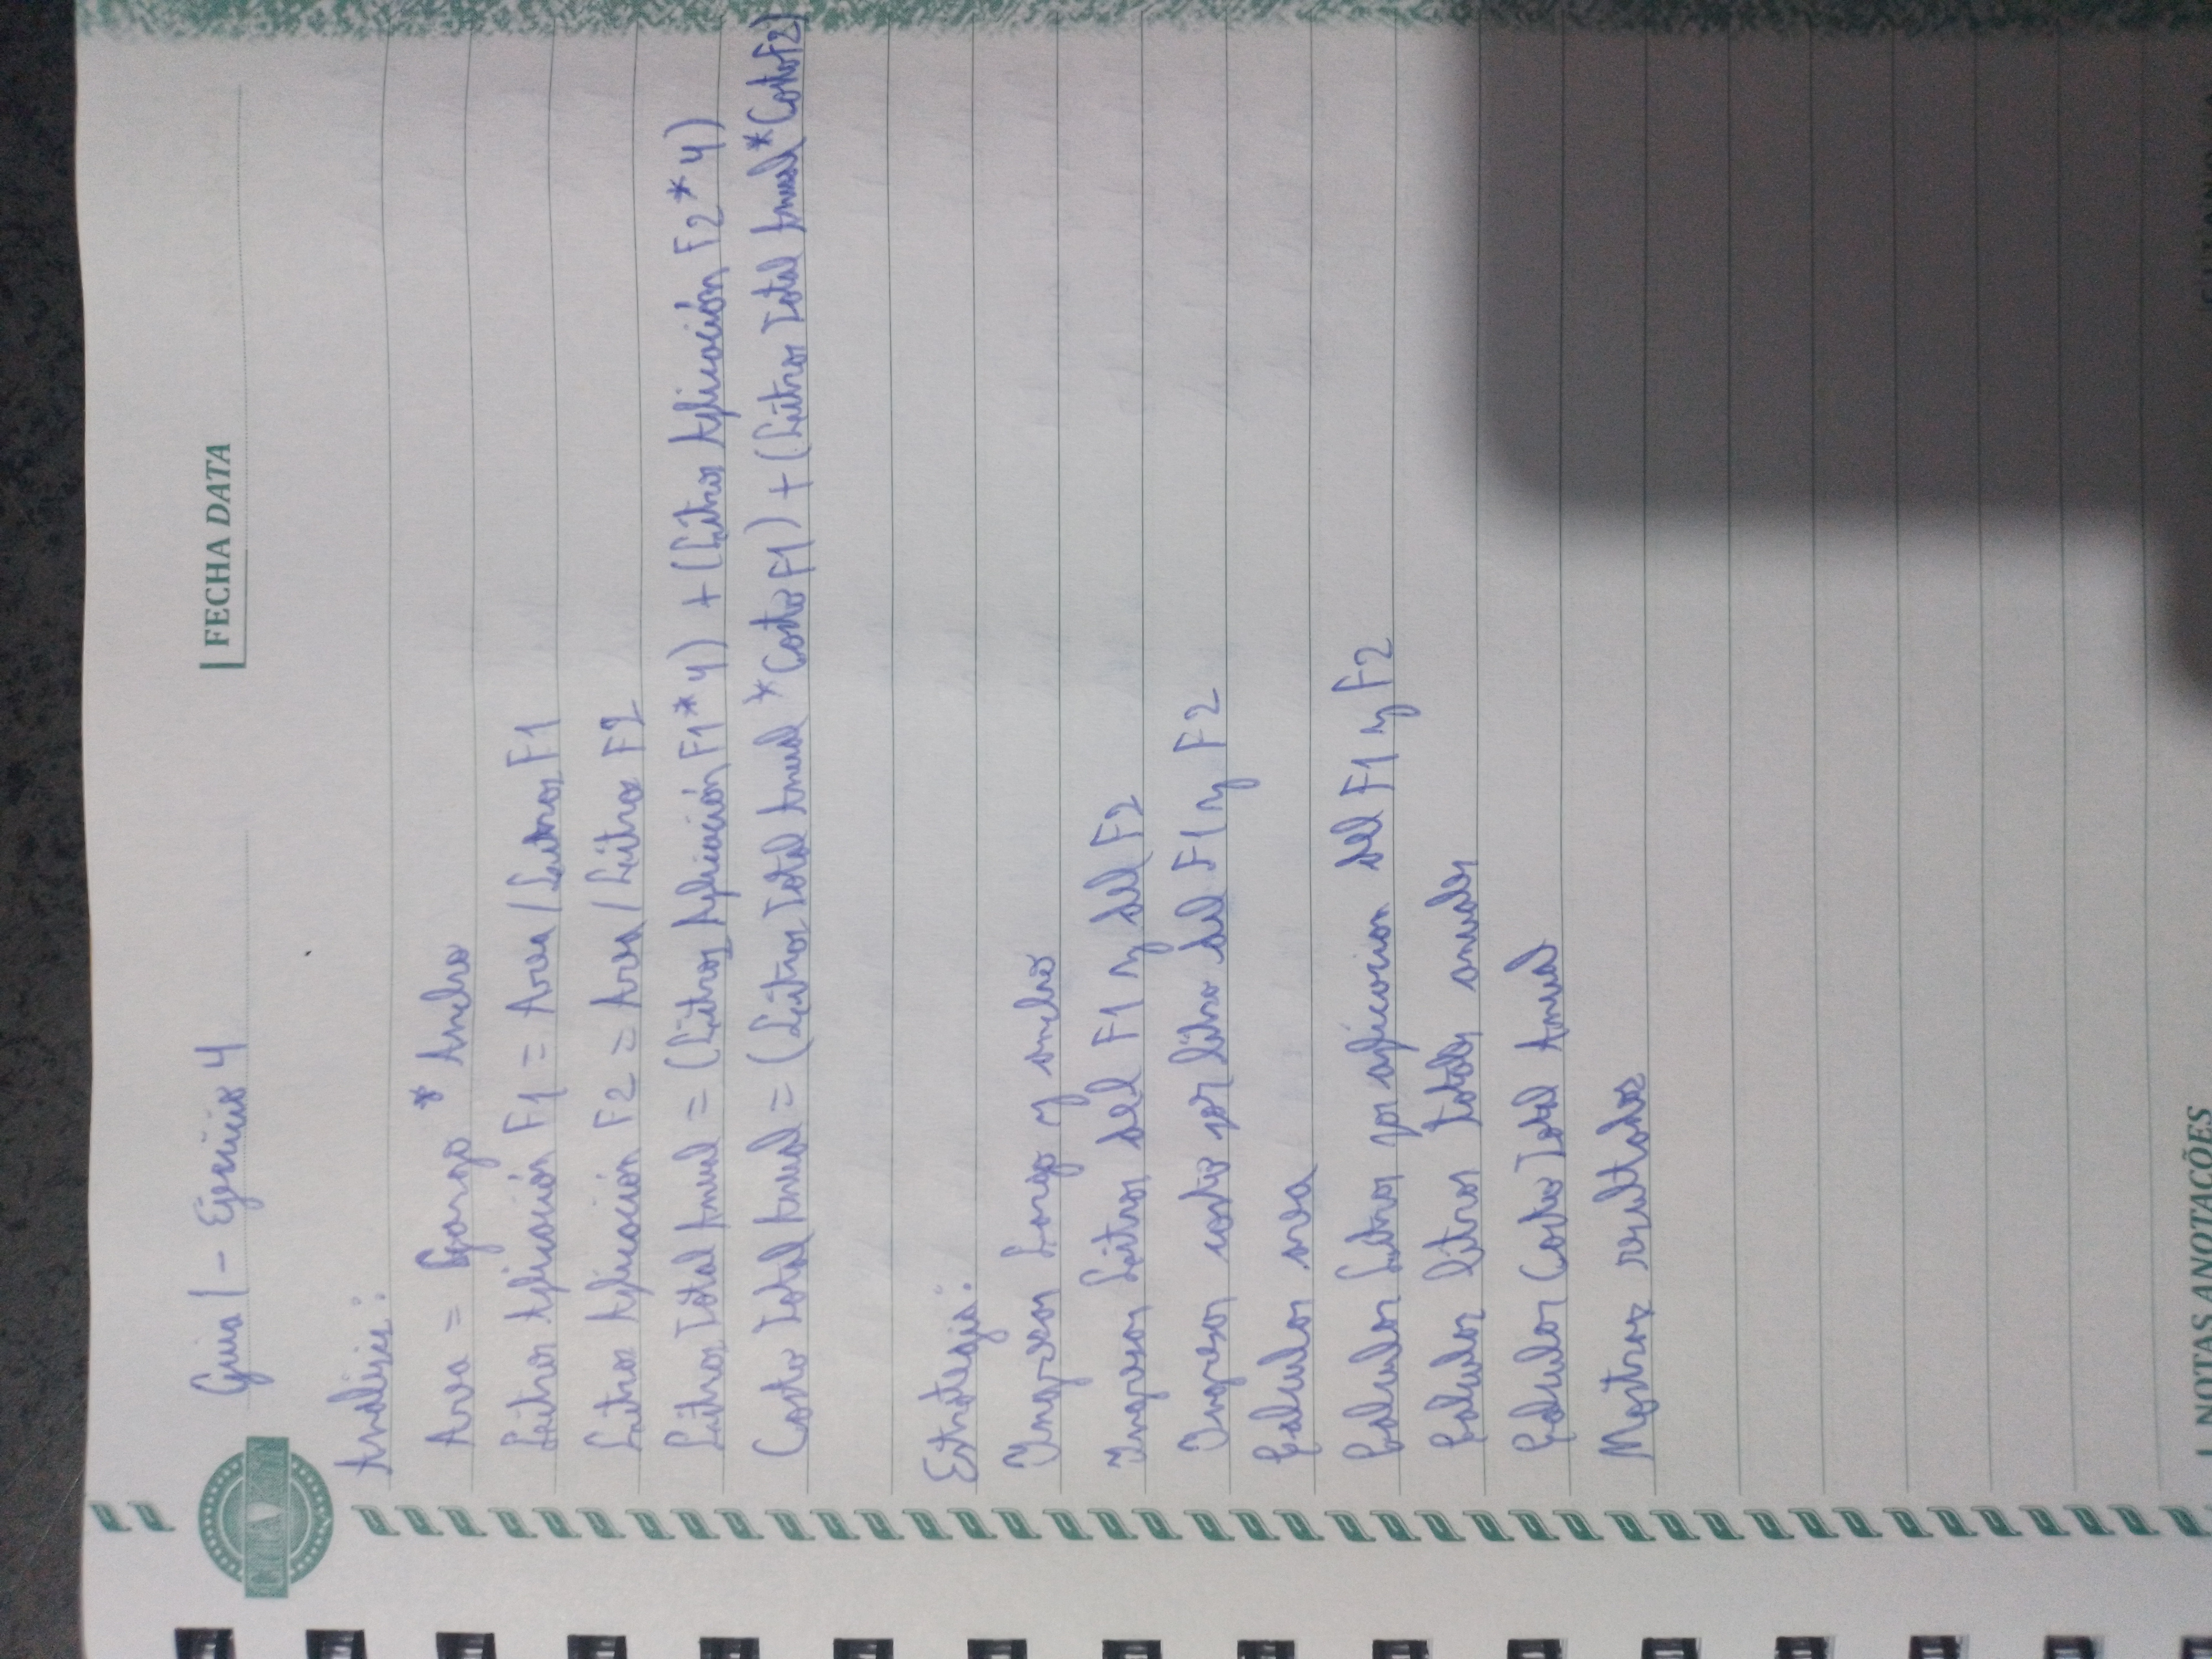 Guia 1 - Ejercicio 4
FECHA DATA
Analisis:
Area = Largo * Ancho
Litros Aplicación F1 = Area / Litros F1
Litros Aplicación F2 = Area / Litros F2
Litros Total Anual = (Litros Aplicación F1 * 4) + (Litros Aplicación F2 * 4)
Costo Total Anual = (Litros Total Anual * Costo F1) + (Litros Total Anual * Costo F2)
Estrategia:
Ingresar Largo y ancho
Ingresar Litros del F1 y del F2
Ingresar costo por litro del F1 y F2
Calcular area
Calcular Litros por aplicacion del F1 y F2
Calcular litros totales anuales
Calcular Costo Total Anual
Mostrar resultados
NOTAS ANOTAÇÕES